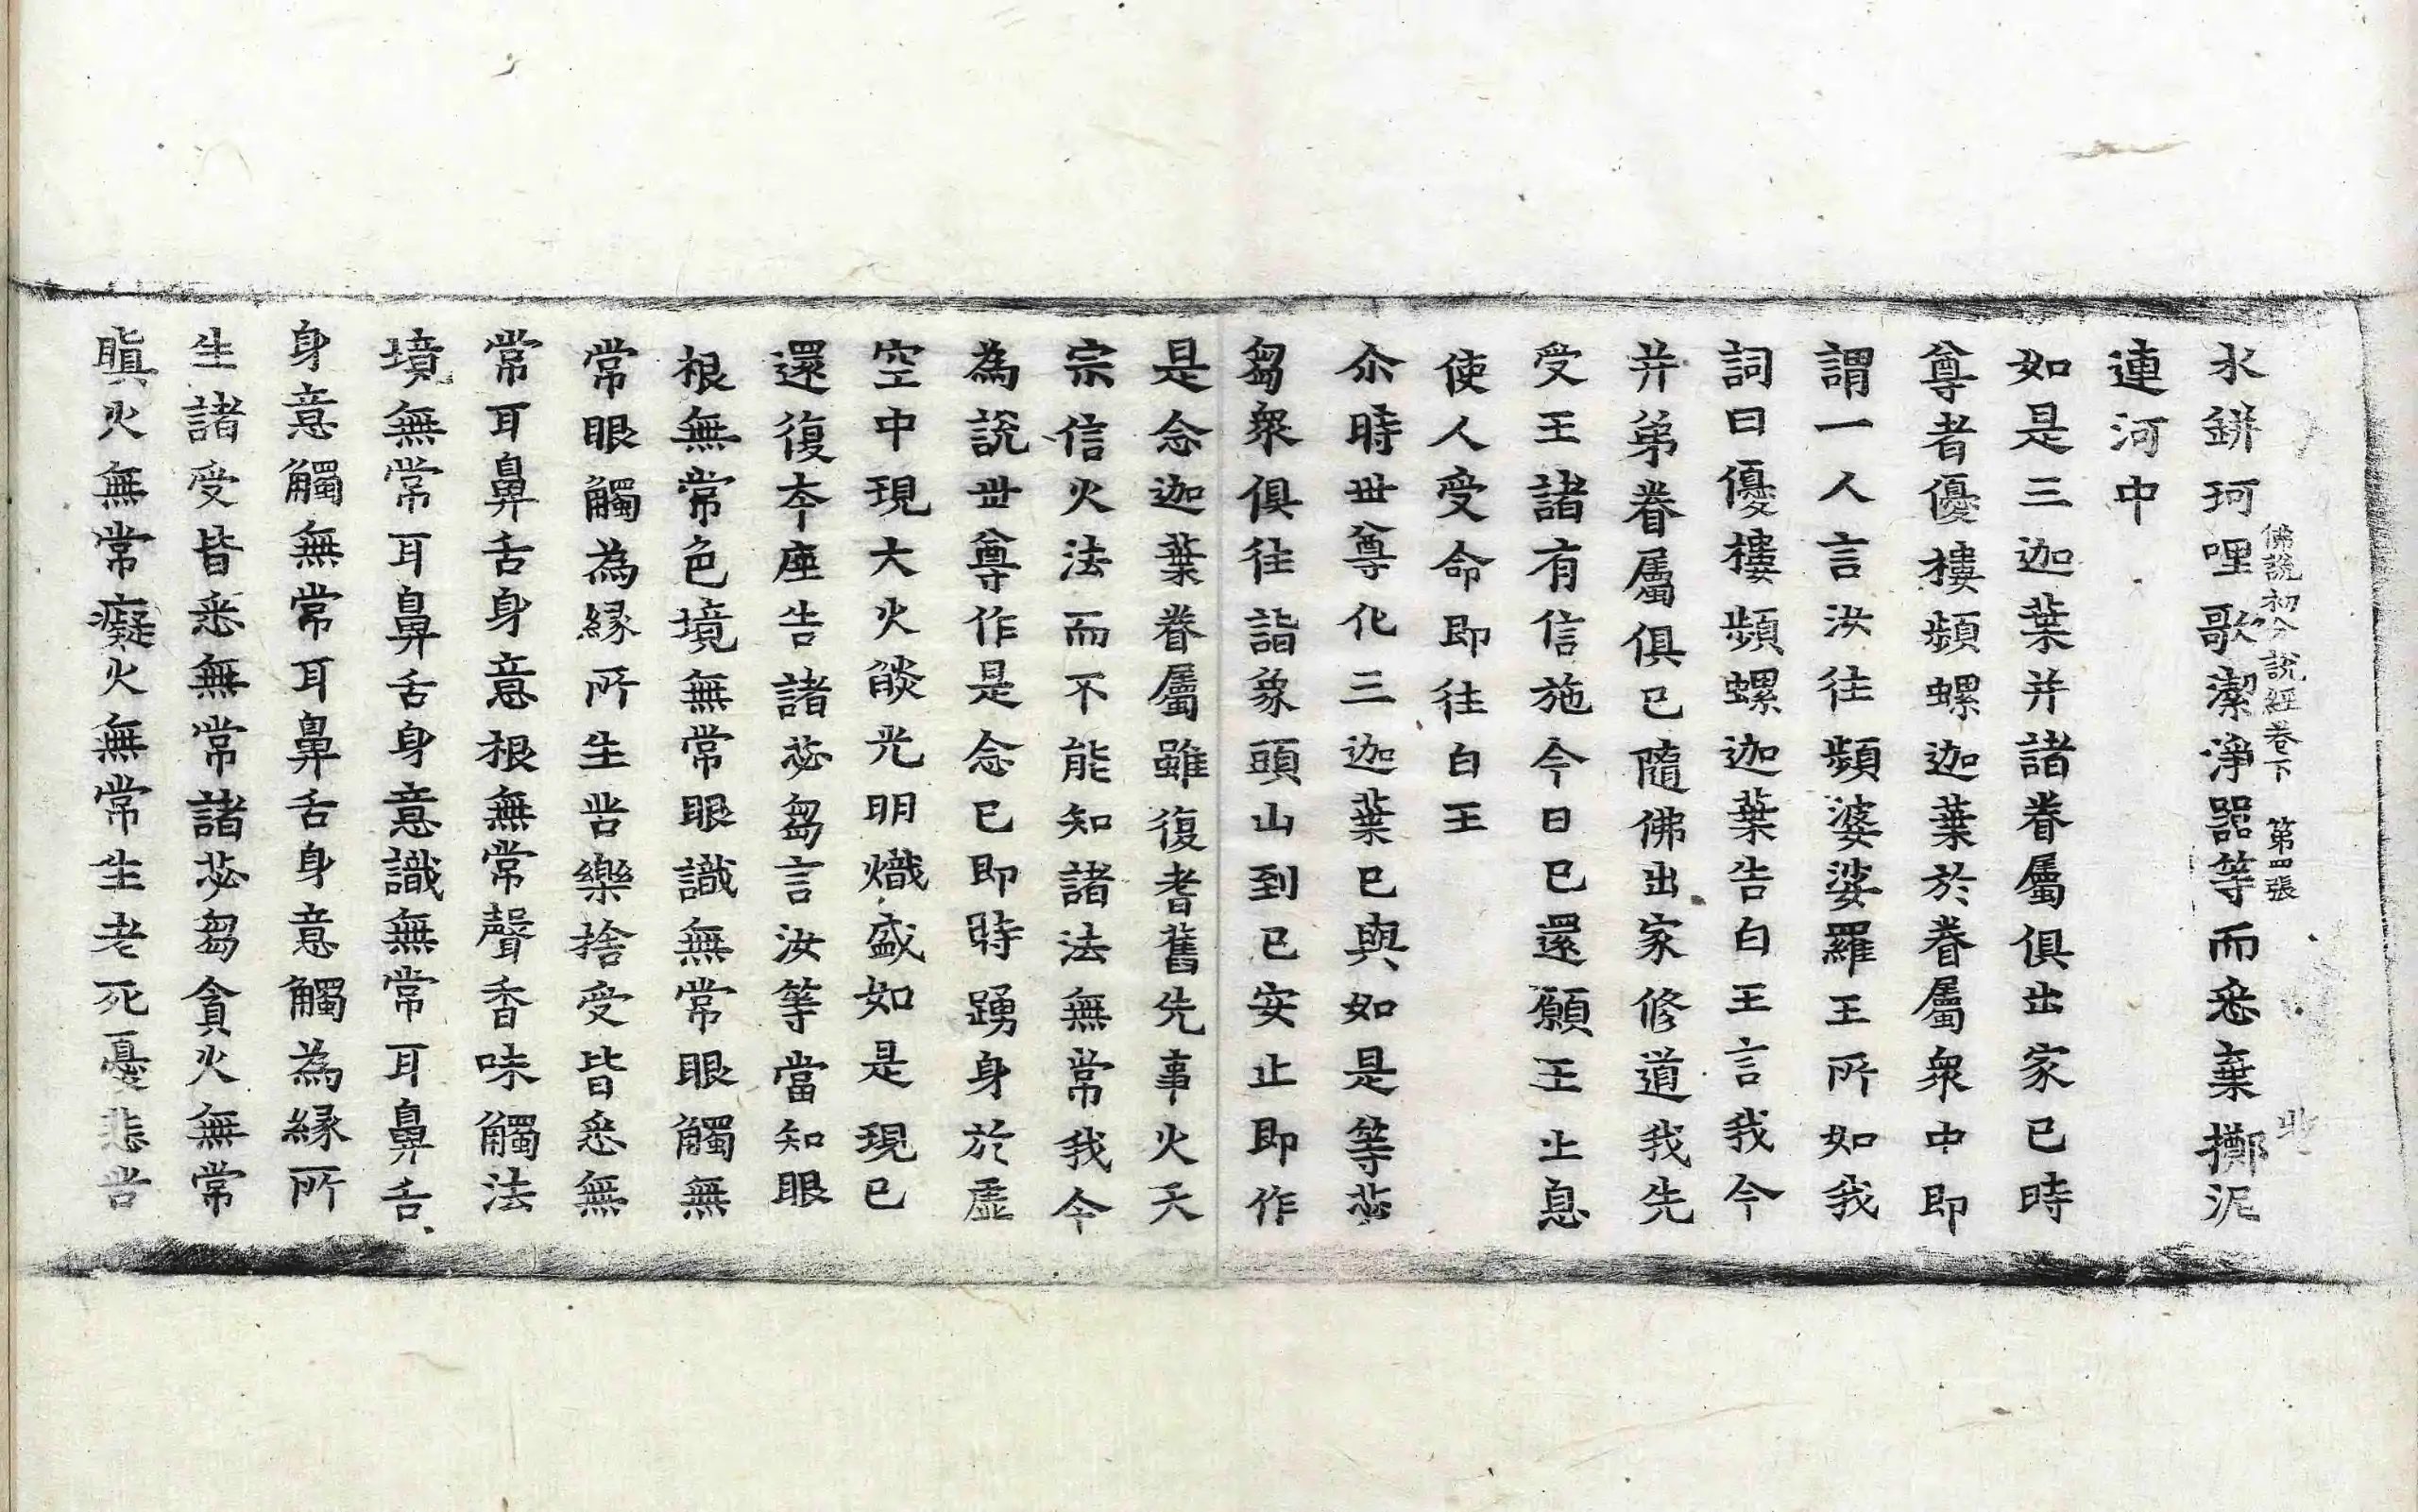 佛說初分說經卷下　第四張　
水缾珂哩歌潔淨器等而悉棄擲泥
連河中
如是三迦葉并諸眷屬俱出家已時
尊者優樓頻螺迦葉於眷屬衆中即
謂一人言汝往頻婆娑羅王所如我
詞曰優樓頻螺迦葉告白王言我今
并弟眷屬俱已隨佛出家修道我先
受王諸有信施今日已還願王止息
使人受命即往白王
尒時世尊化三迦葉已與如是等苾
芻衆俱往詣象頭山到已安止即作
是念迦葉眷屬雖復耆舊先事火天
宗信火法而不能知諸法無常我今
為說世尊作是念已即時踴身於虛
空中現大火燄光明熾盛如是現已
還復本座告諸苾芻言汝等當知眼
根無常色境無常眼識無常眼觸無
常眼觸為緣所生苦樂捨受皆悉無
常耳鼻舌身意根無常聲香味觸法
境無常耳鼻舌身意識無常耳鼻舌
身意觸無常耳鼻舌身意觸為緣所
生諸受皆悉無常諸苾芻貪火無常
瞋火無常癡火無常生老死憂悲苦